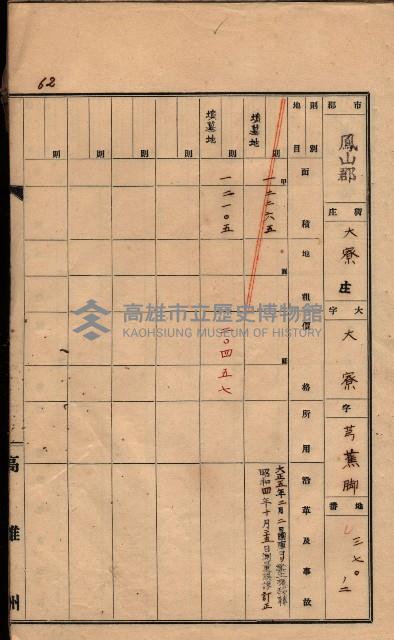 62
市郡 鳳山郡
街庄 大寮庄
大字 大寮
字 芎蕉脚
地番 三七〇ノ二
則別 地目
面積
地租
價格
所用
沿革及事故
則 則 則 則 則 則
甲
圓
墳墓地
一二二六五
墳墓地
一二一〇五
〇四五七
大正五年二月二日
昭和四年十月
訂正
高雄市立歷史博物館
KAOHSIUNG MUSEUM OF HISTORY
高雄州